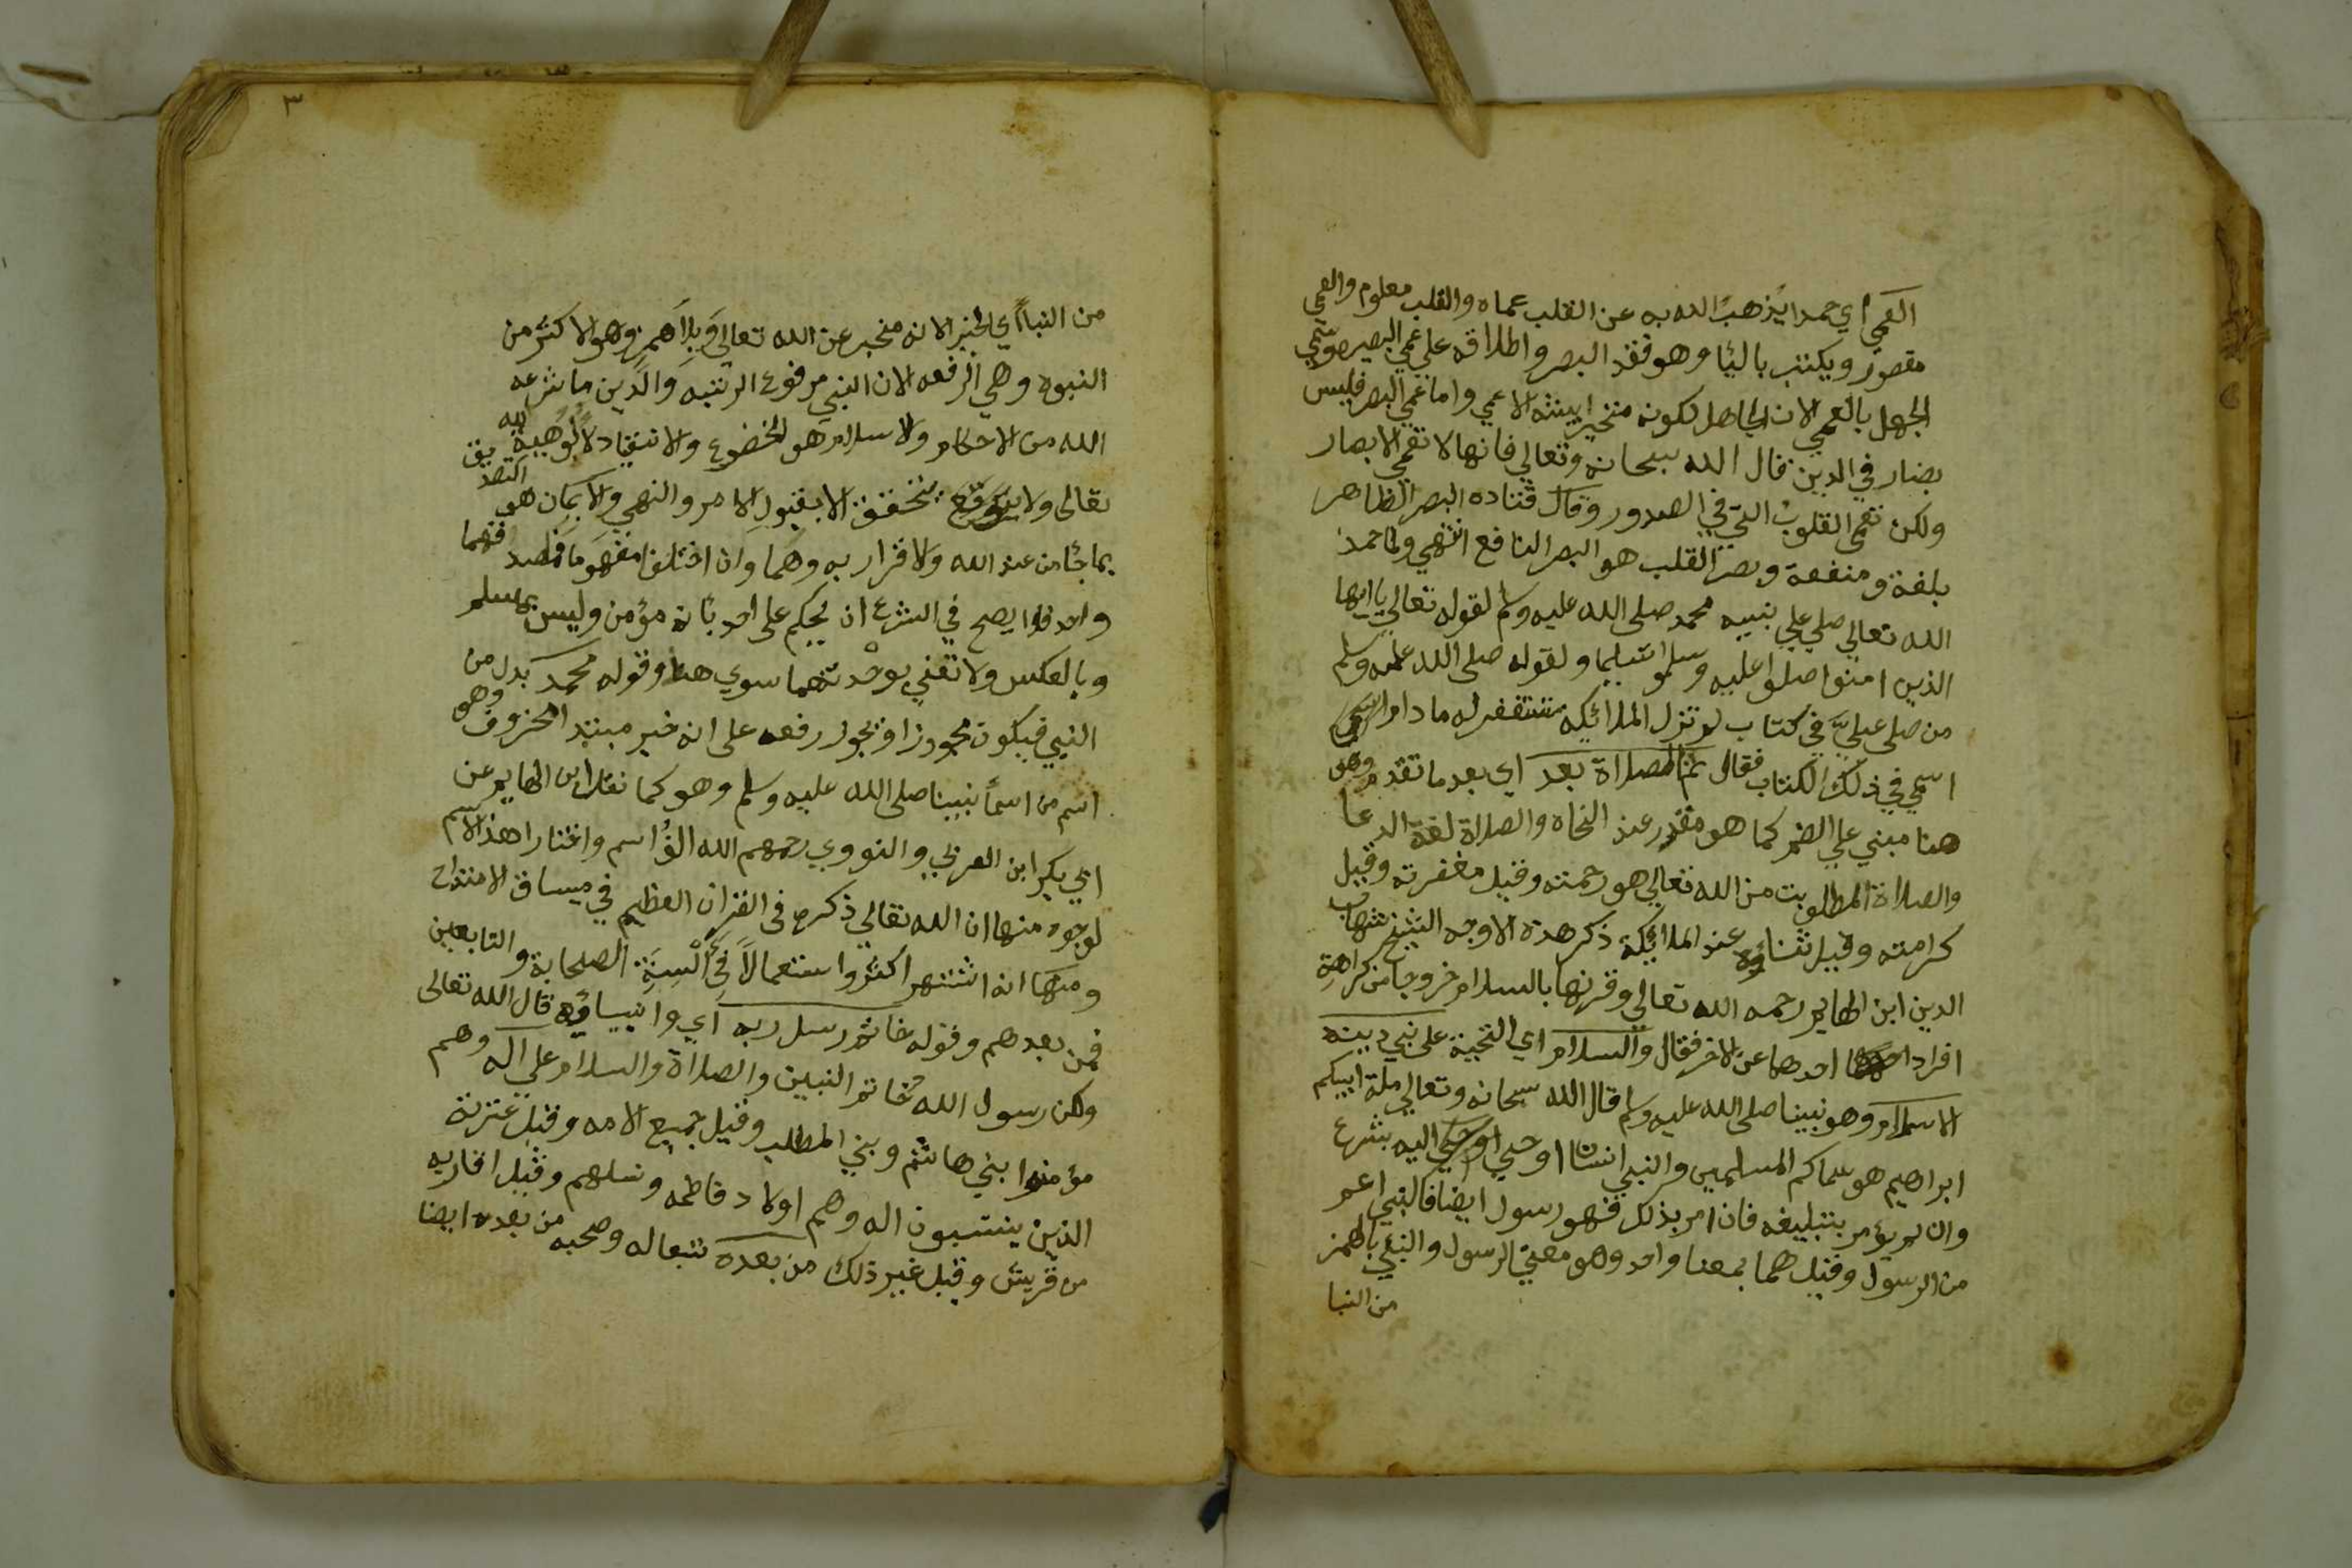 العمي اي حمدا يذهب الله به عن القلب عماه والقلب معلوم والعمي
مقصور ويكتب باليا وهو فقد البصر واطلاقه علي عمي البصير وسمي
الجهل بالعمي لان الجاهل لكونه متحيرا يشبه الاعمي واما عمي البصر فليس
بضار في الدين قال الله سبحانه وتعالي فانها لا تعمي الابصار
ولكن تعمي القلوب التي في الصدور وقال قتاده البصر الظاهر
بلغة ومنفعة وبصر القلب هو البصر النافع انتهي ولما حمد
الله تعالي صلي علي نبيه محمد صلى الله عليه وسلم لقوله تعالي يا ايها
الذين امنوا صلوا عليه وسلموا تسليما ولقوله صلى الله عليه وسلم
من صلى علي في كتاب لم تزل الملائكه تستغفر له ما دام
اسمي في ذلك الكتاب فقال ثم الصلاة بعد اي بعد ما تقدم وهو
هنا مبني علي الضم كما هو مقرر عند النحاه والصلاة لغة الدعا
والصلاة المطلوبت من الله تعالي هو رحمته وقيل مغفرته وقيل
كرامته وقيل ثناؤه عند الملائكة ذكر هذه الاوجه الشيخ شهاب
الدين ابن الهايم رحمه الله تعالي وقرنها بالسلام خروجا من كراهة
افراد احدهما عن الاخر فقال والسلام اي التحية على نبي دينه
الاسلام وهو نبينا صلى الله عليه وسلم قال الله سبحانه وتعالي ملة ابيكم
ابراهيم هو سماكم المسلمين والنبي انسان اوحي اليه بشرع
وان لم يؤمر بتبليغه فان امر بذلك فهو رسول ايضا فالنبي اعم
من الرسول وقيل هما بمعنا واحد وهو معني الرسول والنبي بالهمز
من النبا
٣
من النباء اي الخبر لانه مخبر عن الله تعالي وبلا همز وهو الاكثر من
النبوه وهي الرفعه لان النبي مرفوع الرتبه والدين ما شرعه
الله من الاحكام والاسلام هو الخضوع والانقياد لالوهية لله
تعالى ولا يتحقق الا بقبول الامر والنهي والايمان هو التصديق
بما جا من عند الله والاقرار به وهما وان اختلفا مفهوما فماصدقهما
واحد فلا يصح في الشرع ان يحكم على احد بانه مؤمن وليس بمسلم
وبالعكس ولا تعني بوحدتهما سوي هذا وقوله محمد بدل من
النبي فيكون مجرورا ويجوز رفعه على انه خبر مبتدا محذوف وهو
اسم من اسماء نبينا صلى الله عليه وسلم وهو كما نقل ابن الهايم عن
ابي بكر ابن العربي والنووي رحمهم الله الف اسم واختار هذا الاسم
لوجوه منها ان الله تعالي ذكره في القران العظيم في مساق الامتداح
ومنها انه اشتهر اكثر واستعمالا في السنة الصحابة والتابعين
فمن بعدهم وقوله خاتم رسل ربه اي وانبيائه قال الله تعالى
ولكن رسول الله خاتم النبيين والصلاة والسلام علي اله وهم
مؤمنوا بني هاشم وبني المطلب وقيل جميع الامه وقيل عترته
الذين ينتسبون اله وهم اولاد فاطمه ونسلهم وقيل اقاربه
من قريش وقيل غير ذلك من بعده تبعا له وصحبه من بعده ايضا